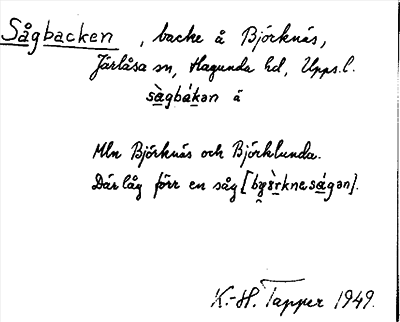 Sågbacken, backe å Björknäs,
Järlåsa sn, Hagunda hd, Upps.l.
sàgbák̀ən ä
Mln Björknäs och Björklunda.
Där låg förr en såg
K.-H. Tapper 1949.